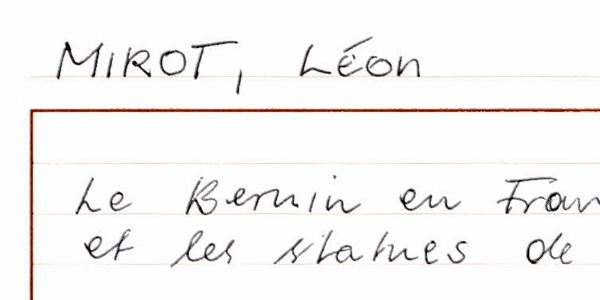 MIROT, Léon
Le Bernin en Fran
et les statues de